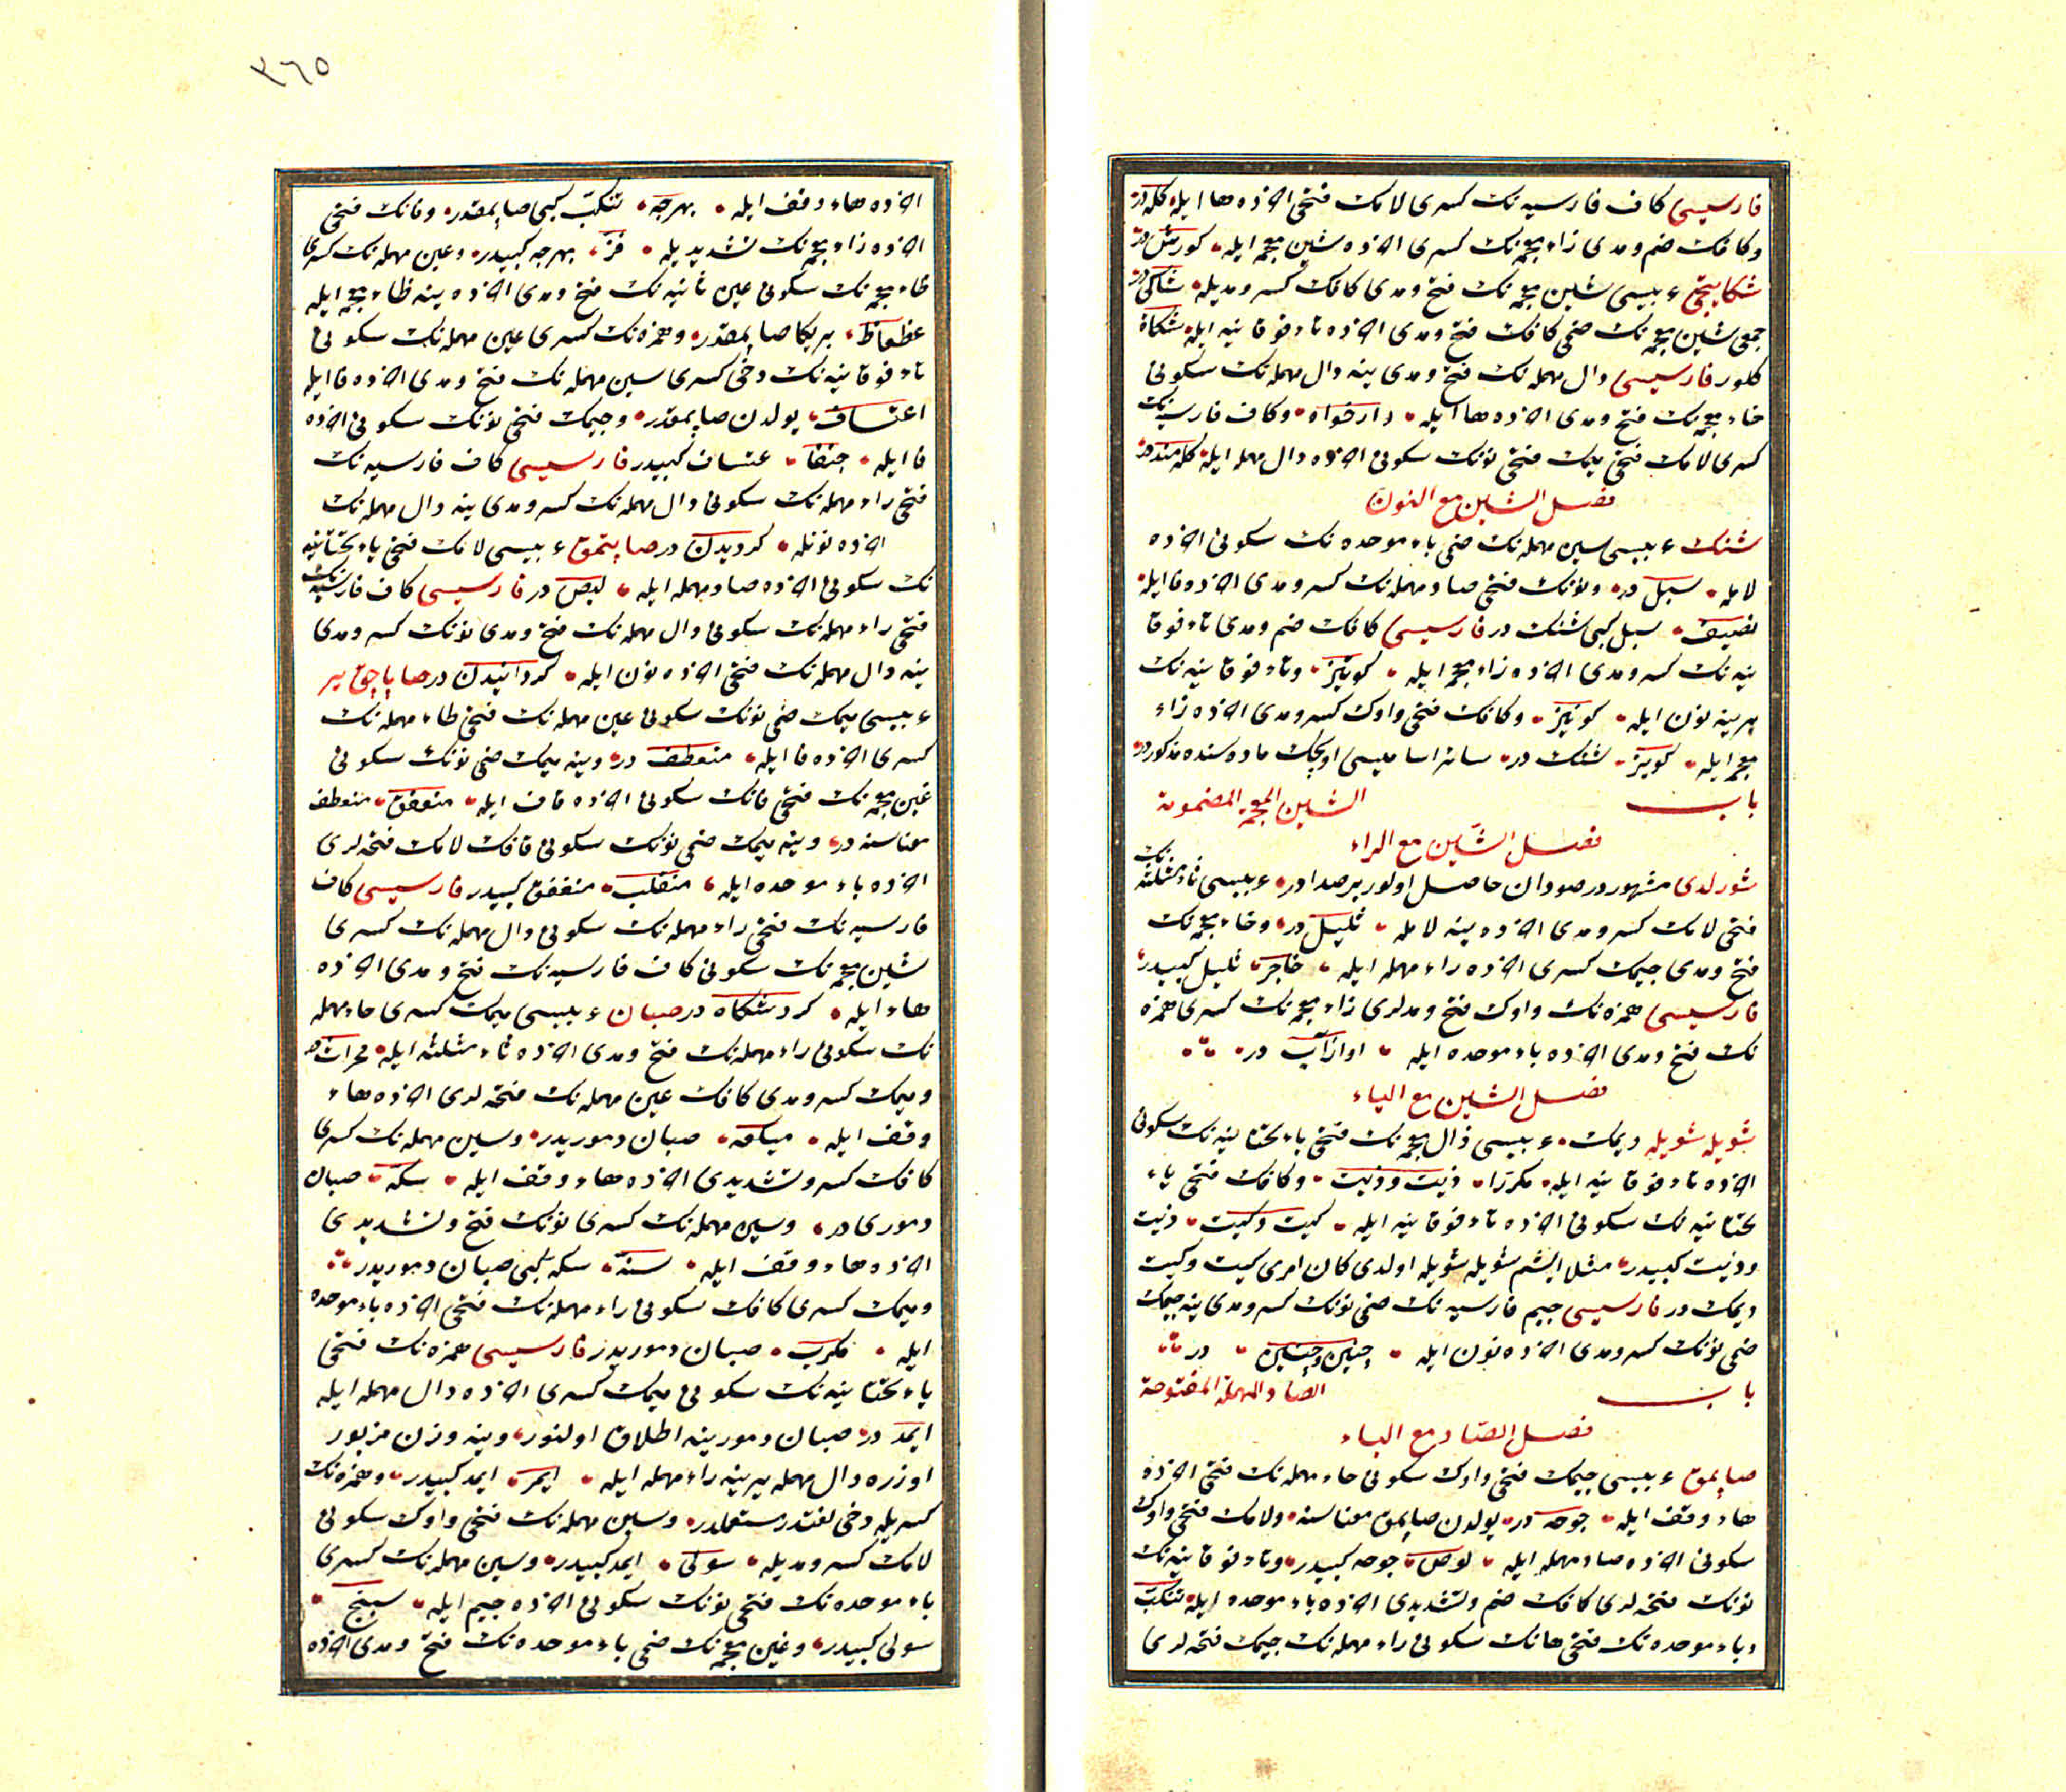 فارسیسی كاف فارسیه نك كسری لامك فتحی اخرده ها ایله كله در
و كافك ضم و مدی زاء معجمه نك كسری اخرده شین معجمه ایله كورش در
شكایتجی عربیسی شین معجمه نك فتح و مدی كافك كسر و مدیله شاكی در
جمعی شین معجمه نك ضمی كافك فتح و مدی اخرده تاء فوقانیه ایله شكاة
كلور فارسیسی دال مهمله نك فتح و مدی ینه دال مهمله نك سكونی
خاء معجمه نك فتح و مدی اخرده ها ایله دادخواه و كاف فارسیه نك
كسری لامك فتحی میمك فتحی نونك سكونی اخرده دال مهمله ایله كله مند در
فصل الشین مع النون
شنك عربیسی سین مهمله نك ضمی باء موحده نك سكونی اخرده
لامله سبل در و نونك فتحی صاد مهمله نك كسر و مدی اخرده فا ایله
نصیف سبل كبی شنك در فارسیسی كافك ضم و مدی تاء فوقا
نیه نك كسر و مدی اخرده زاء معجمه ایله كوتیز و تاء فوقانیه نك
یرینه نون ایله كونیز و كافك فتحی واوك كسر و مدی اخرده زاء
معجمه ایله كویز شنك در سائر اسامیسی اولچك ماده سنده مذكور در
باب الشین المعجمة المضمومة
فصل الشین مع الراء
شورلدی مشهور در صودان حاصل اولور بر صدا در عربیسی ثاء مثلثه نك
فتحی لامك كسر و مدی اخرده ینه لامله ثلیل در و خاء معجمه نك
فتح و مدی جیمك كسری اخرده راء مهمله ایله خاجر ثلیل كبیدر
فارسیسی همزه نك واوك فتح و مدلری زاء معجمه نك كسری همزه
نك فتح و مدی اخرده باء موحده ایله اواز آب در
فصل الشین مع الیاء
شویله شویله دیمك عربیسی ذال معجمه نك فتحی یاء تحتانیه نك سكونی
اخرده تاء فوقانیه ایله مكررا ذیت و ذیت و كافك فتحی یاء
تحتانیه نك سكونی اخرده تاء فوقانیه ایله كیت و كیت ذیت
و ذیت كبیدر مثلا ایشم شویله شویله اولدی كان امری كیت و كیت
دیمك در فارسیسی جیم فارسیه نك ضمی نونك كسر و مدی ینه جیمك
ضمی نونك كسر و مدی اخرده نون ایله چنین و چنین در
باب الصاد المهملة المفتوحة
فصل الصاد مع الباء
صاپمق عربیسی جیمك فتحی واوك سكونی حاء مهمله نك فتحی اخرده
هاء وقف ایله جوحه در یولدن صاپمق معناسنه و لامك فتحی واوك
سكونی اخرده صاد مهمله ایله لوص جوحه كبیدر و تاء فوقانیه نك
نونك فتحه لری كافك ضم و تشدیدی اخرده باء موحده ایله تنكب
و باء موحده نك فتحی هانك سكونی راء مهمله نك جیمك فتحه لری
٣٦٥
اخرده هاء وقف ایله بهرجه تنكب كبی صاپمقدر و فانك فتحی
اخرده زاء معجمه نك تشدیدیله فز بهرجه كبیدر و عین مهمله نك كسری
ظاء معجمه نك سكونی عین ثانیه نك فتح و مدی اخرده ینه ظاء معجمه ایله
عظعاظ بر یكا صاپمقدر و همزه نك كسری عین مهمله نك سكونی
تاء فوقانیه نك دخی كسری سین مهمله نك فتح و مدی اخرده فا ایله
اعتساف یولدن صاپمقدر و جیمك فتحی نونك سكونی اخرده
فا ایله جنفا عتساف كبیدر فارسیسی كاف فارسیه نك
فتحی راء مهمله نك سكونی دال مهمله نك كسر و مدی ینه دال مهمله نك
اخرده نونله كردیدن در صاپتمق عربیسی لامك فتحی یاء تحتانیه
نك سكونی اخرده صاد مهمله ایله لیص در فارسیسی كاف فارسیه نك
فتحی راء مهمله نك سكونی دال مهمله نك فتح و مدی نونك كسر و مدی
ینه دال مهمله نك فتحی اخرده نون ایله كردانیدن در صاپاجق یر
عربیسی میمك ضمی نونك سكونی عین مهمله نك فتحی طاء مهمله نك
كسری اخرده فا ایله منعطف در و ینه میمك ضمی نونك سكونی
غین معجمه نك فتحی فانك سكونی اخرده قاف ایله منعفق منعطف
معناسنه در و ینه میمك ضمی نونك سكونی قافك لامك فتحه لری
اخرده باء موحده ایله منقلب منعفق كبیدر فارسیسی كاف
فارسیه نك فتحی راء مهمله نك سكونی دال مهمله نك كسری
شین معجمه نك سكونی كاف فارسیه نك فتح و مدی اخرده
هاء ایله كردشكاه در صبان عربیسی میمك كسری حاء مهمله
نك سكونی راء مهمله نك فتح و مدی اخرده ثاء مثلثه ایله محراث در
و میمك كسر و مدی كافك عین مهمله نك فتحه لری اخرده هاء
وقف ایله میكعه صبان دموریدر و سین مهمله نك كسری
كافك كسر و تشدیدی اخرده هاء وقف ایله سكه صبان
دموری در و سین مهمله نك كسری نونك فتح و تشدیدی
اخرده هاء وقف ایله سنه سكه كبی صبان دموریدر
و میمك كسری كافك سكونی راء مهمله نك فتحی اخرده باء موحده
ایله مكرب صبان دموریدر فارسیسی همزه نك فتحی
یاء تحتانیه نك سكونی میمك كسری اخرده دال مهمله ایله
ایمد در صبان دمورینه اطلاق اولنور و ینه وزن مزبور
اوزره دال مهمله یرینه راء مهمله ایله ایمر ایمد كبیدر و همزه نك
كسریله دخی لغتدر مستعملدر و سین مهمله نك فتحی واوك سكونی
لامك كسر و مدیله سولی ایمد كبیدر و سین مهمله نك كسری
باء موحده نك فتحی نونك سكونی اخرده جیم ایله سبنج
سولی كبیدر و غین معجمه نك ضمی باء موحده نك فتح و مدی اخرده